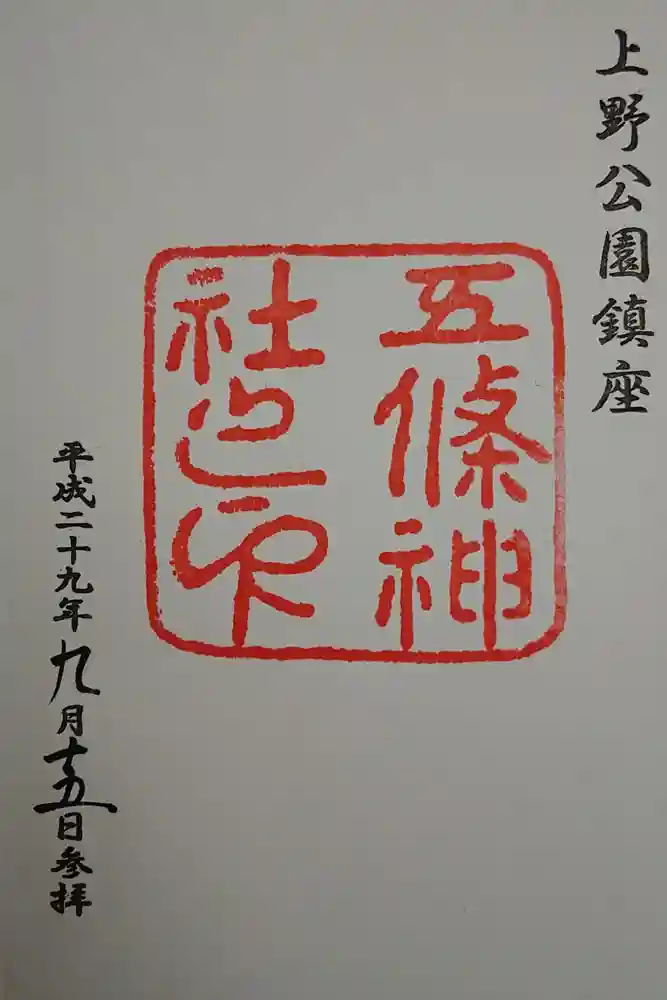 上野公園鎮座
五條神
社之印
平成二十九年九月十五日参拝